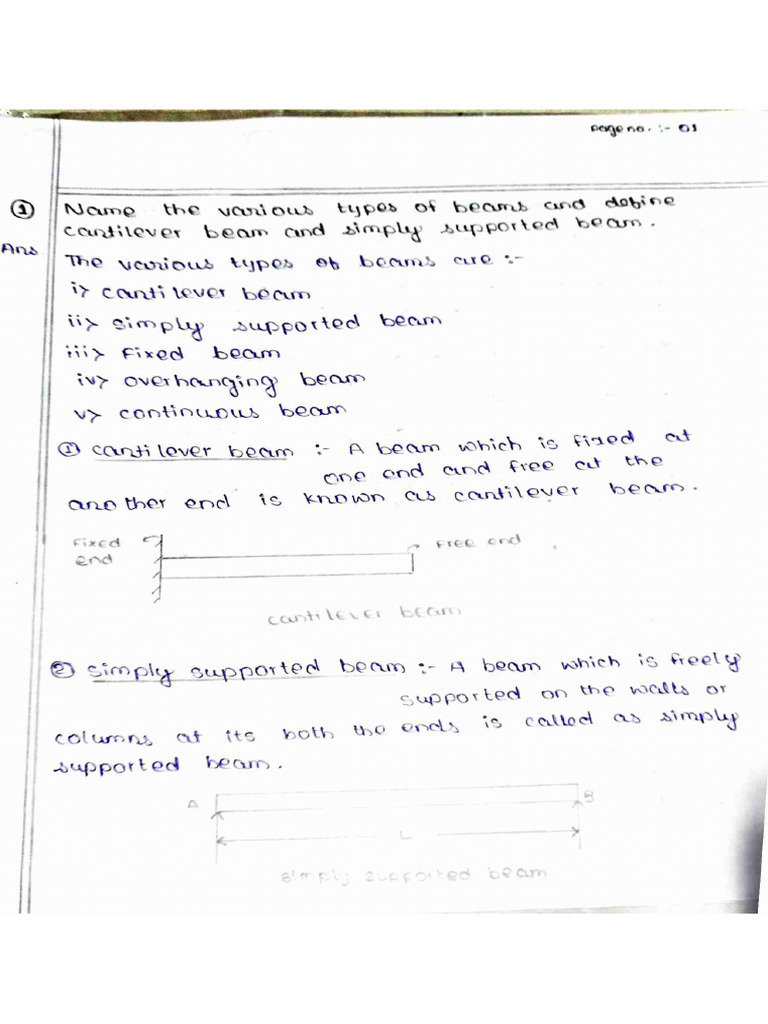 Page no. :- 01
① Name the various types of beams and define
cantilever beam and simply supported beam.
Ans The various types of beams are :-
i> cantilever beam
ii> simply supported beam
iii> Fixed beam
iv> overhanging beam
v> continuous beam
① cantilever beam :- A beam which is fixed at
one end and free at the
another end is known as cantilever beam.
Fixed end
Free end
cantilever beam
② simply supported beam :- A beam which is freely
supported on the walls or
columns at its both the ends is called as simply
supported beam.
A B
L
simply supported beam